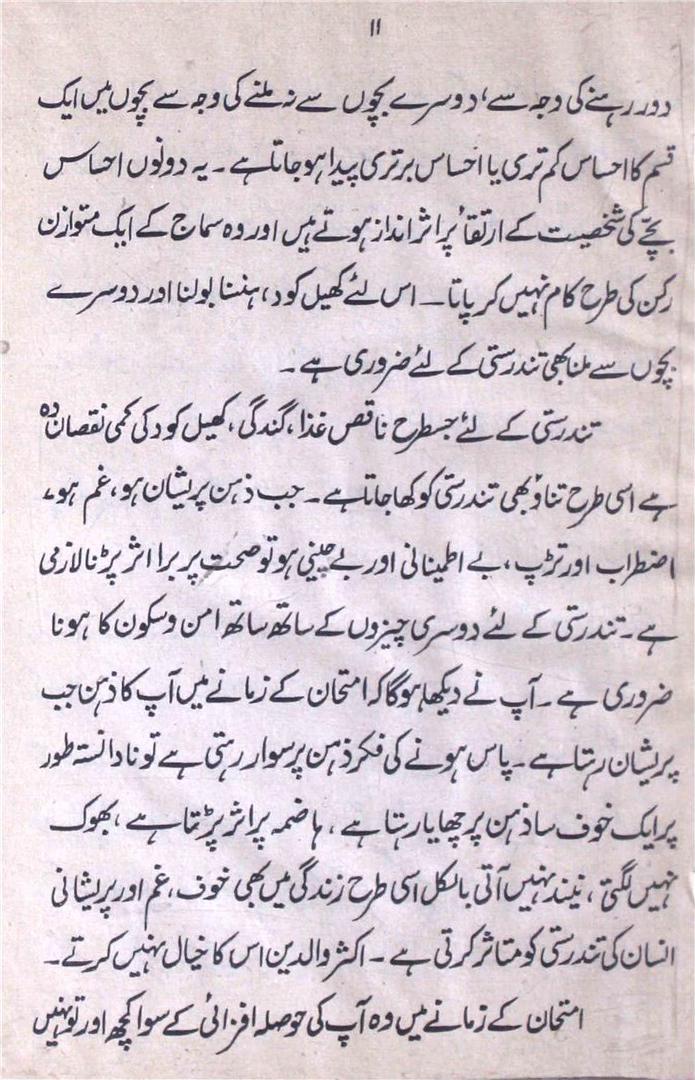 ۱۱
دور رہنے کی وجہ سے، دوسرے بچوں سے نہ ملنے کی وجہ سے بچوں میں ایک
قسم کا احساس کم تری یا احساس برتری پیدا ہو جاتا ہے۔ یہ دونوں احساس
بچّے کی شخصیت کے ارتقأ پر اثر انداز ہوتے ہیں اور وہ سماج کے ایک متوازن
رکن کی طرح کام نہیں کر پاتا۔ اس لئے کھیل کود، ہنسنا بولنا اور دوسرے
بچوں سے ملنا بھی تندرستی کے لئے ضروری ہے۔
تندرستی کے لئے جسطرح ناقص غذا، گندگی، کھیل کود کی کمی نقصان دہ
ہے اسی طرح تناؤ بھی تندرستی کو کھا جاتا ہے۔ جب ذہن پریشان ہو، غم ہو،
اضطراب اور تڑپ، بے اطمینانی اور بے چینی ہو تو صحت پر برا اثر پڑنا لازمی
ہے۔ تندرستی کے لئے دوسری چیزوں کے ساتھ ساتھ امن و سکون کا ہونا
ضروری ہے۔ آپ نے دیکھا ہوگا کہ امتحان کے زمانے میں آپ کا ذہن جب
پریشان رہتا ہے۔ پاس ہونے کی فکر ذہن پر سوار رہتی ہے تو نادانستہ طور
پر ایک خوف سا ذہن پر چھایا رہتا ہے، ہاضمہ پر اثر پڑتا ہے، بھوک
نہیں لگتی، نیند نہیں آتی بالکل اسی طرح زندگی میں بھی خوف، غم اور پریشانی
انسان کی تندرستی کو متاثر کرتی ہے۔ اکثر والدین اس کا خیال نہیں کرتے۔
امتحان کے زمانے میں وہ آپ کی حوصلہ افزائی کے سوا کچھ اور تو نہیں